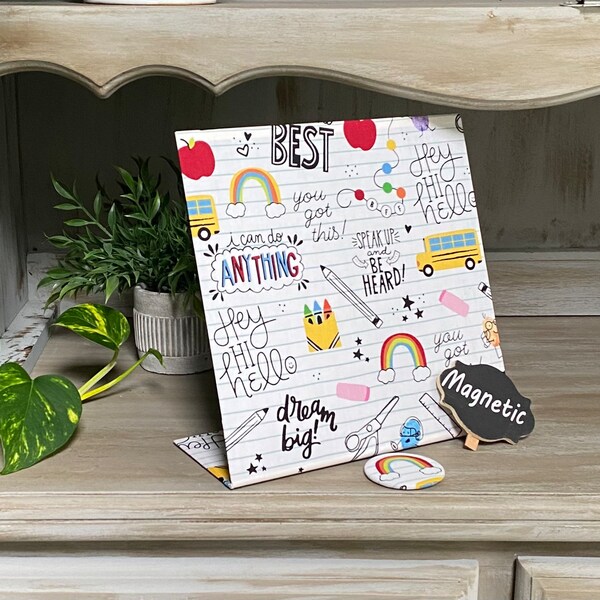 BEST
Hey
HI
hello
you
got
this!
i can do
ANYTHING
SPEAK UP
and
BE
HEARD!
Hey
HI
hello
you
got
dream
big!
Magnetic